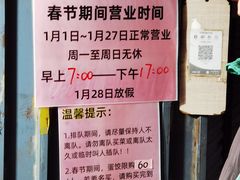 春节期间营业时间
1月1日~1月27日正常营业
周一至周日无休
早上7:00——下午17:00
1月28日放假
温馨提示:
1、排队期间,请尽量保持人不
离队。请勿离队买菜或离队太
久或临时叫人插队!!
2、春节期间,蛋饺限购60